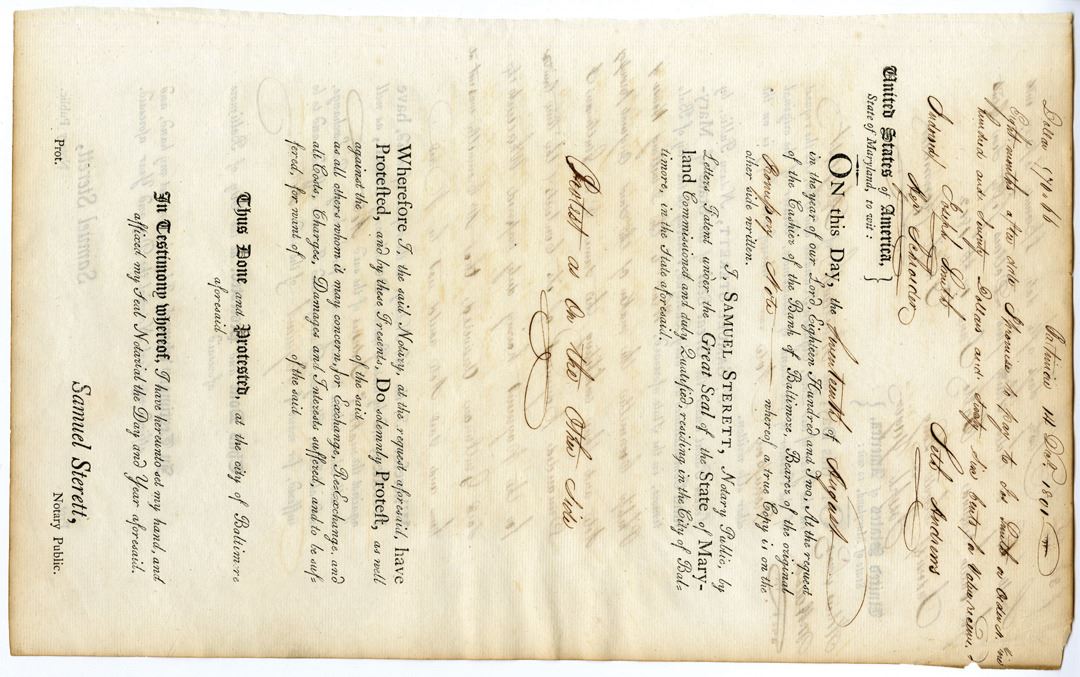 Dollars 970.66 Baltimore 1st Oct. 1801
Eight months after date I promise to pay to Jas. Smith or Order, Nine
hundred and seventy Dollars and sixty six Cents for Value received,
Seth Andrews
Indorsed, Ezekl. Smith
United States of America,
State of Maryland, to wit:
ON this Day, the Seventeenth of August
in the year of our Lord, Eighteen Hundred and Two, At the request
of the Cashier of the Bank of Baltimore, Bearer of the original
Promissory Note whereof a true Copy is on the
other side written.
I, SAMUEL STERETT, Notary Public, by
Letters Patent under the Great Seal of the State of Mary-
land Commissioned and duly Qualified, residing in the City of Bal-
timore, in the State aforesaid.
Protest as On the Other Side
Wherefore I, the said Notary, at the request aforesaid, have
Protested, and by these Presents, Do solemnly Protest, as well
against the of the said
as all others whom it may concern, for Exchange, Re-Exchange, and
all Costs, Charges, Damages and Interests suffered, and to be suf-
fered, for want of of the said
Thus Done and Protested, at the city of Baltimore
aforesaid
In Testimony whereof, I have hereunto set my hand, and
affixed my Seal Notarial the Day and Year aforesaid.
Samuel Sterett,
Prot. Notary Public.